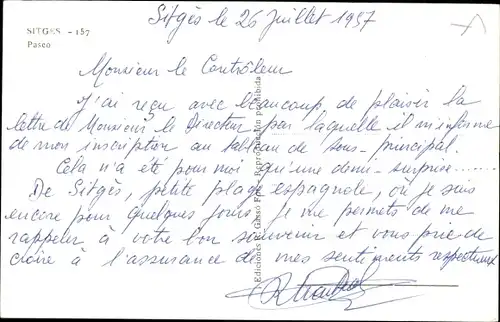 Sitgès le 26 Juillet 1957
SITGES - 157
Paseo
Monsieur le Contrôleur
J'ai reçu avec beaucoup de plaisir la
lettre de Monsieur le Directeur par laquelle il m'informe
de mon inscription au tableau de sous-principal.
Cela n'a été pour moi qu'une demi-surprise.......
De Sitgès, petite plage espagnole, où je suis
encore pour quelques jours je me permets de me
rappeler à votre bon souvenir et vous prie de
croire à l'assurance de mes sentiments respectueux
Ediciones Reproducción prohibida